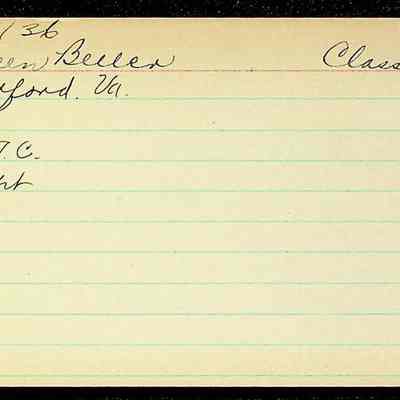 /36
een Beller Class
ford. Va.
T.C.